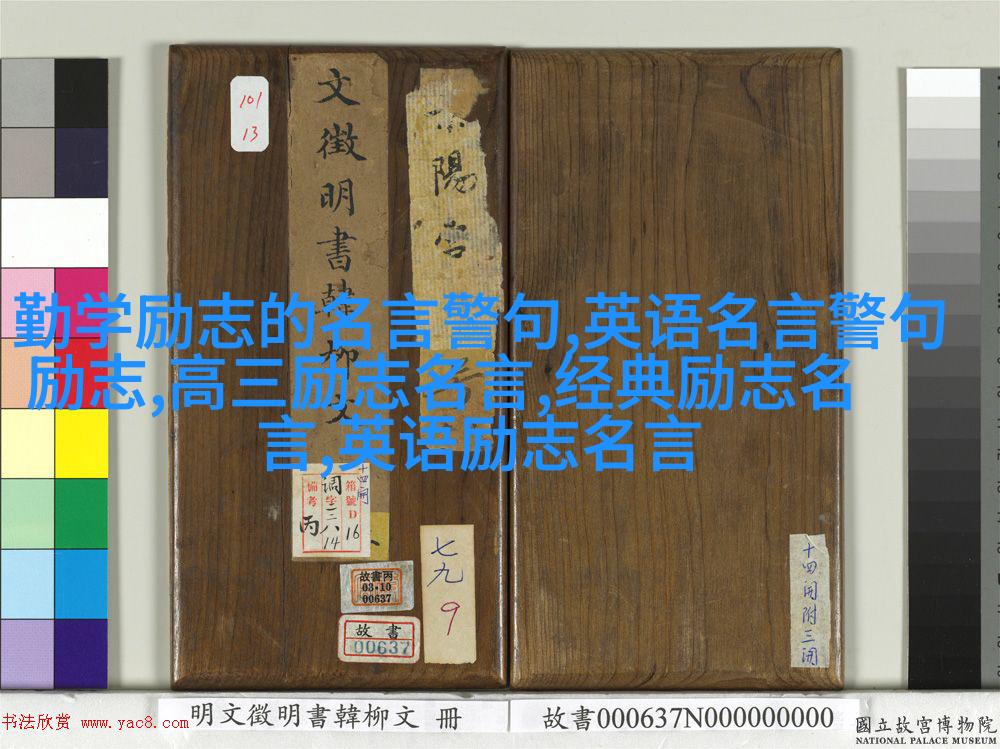 勤学励志的名言警句,英语名言警句
励志,高三励志名言,经典励志名
言,英语励志名言
101
13
文徵明書韓柳文
陽宮
十四開
箱號D
16
調字三八
14
備考
丙
故書丙
03-10
00637
故書
00637
七九
9
十四開附三開
明文徵明書韓柳文 冊
故書000637N000000000
國立故宮博物院
NATIONAL PALACE MUSEUM
书法欣赏 www.yac8.com